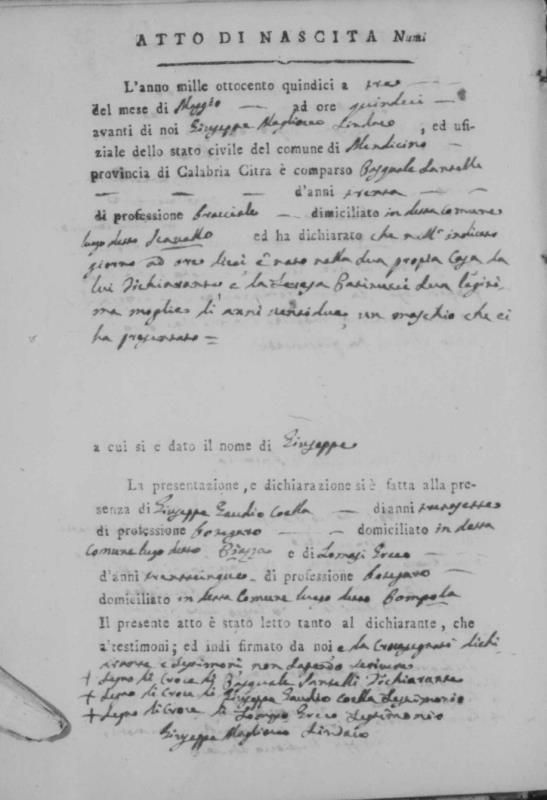 ATTO DI NASCITA Num
L'anno mille ottocento quindici a tre
del mese di Maggio — ad ore quindeci —
avanti di noi Giuseppe Magliocco Sindaco, ed ufi-
ziale dello stato civile del comune di Mendicino —
provincia di Calabria Citra è comparso Pasquale Santelli
— — — d'anni trenta — —
di professione bracciale — dimiciliato in detta comune
luogo detto ed ha dichiarato che nell' indicato
giorno ad ore dieci è nato nella sua propria Casa da
lui Dichiarante e la Teresa sua legiti-
ma moglie di anni ventidue, un maschio che ci
ha presentato =
a cui si e dato il nome di Giuseppe
La presentazione, e dichiarazione si è fatta alla pre-
senza di Giuseppe Gaudio Coella — di anni trentasette
di professione — domiciliato in detta
Comune luogo detto Piazza e di Tomasi Greco —
d'anni trentacinque - di professione —
domiciliato in detta Comune luogo detto
Il presente atto è stato letto tanto al dichiarante, che
a'testimoni; ed indi firmato da noi e da Crocesegnati dichi
arante e testimonj non sapendo scrivere
+ Segno di Croce di Pasquale Santelli Dichiarante
+ Segno di Croce di Giuseppe Gaudio Coella Testimonio
+ Segno di Croce di Tomaso Greco Testimonio
Giuseppe Magliocco Sindaco